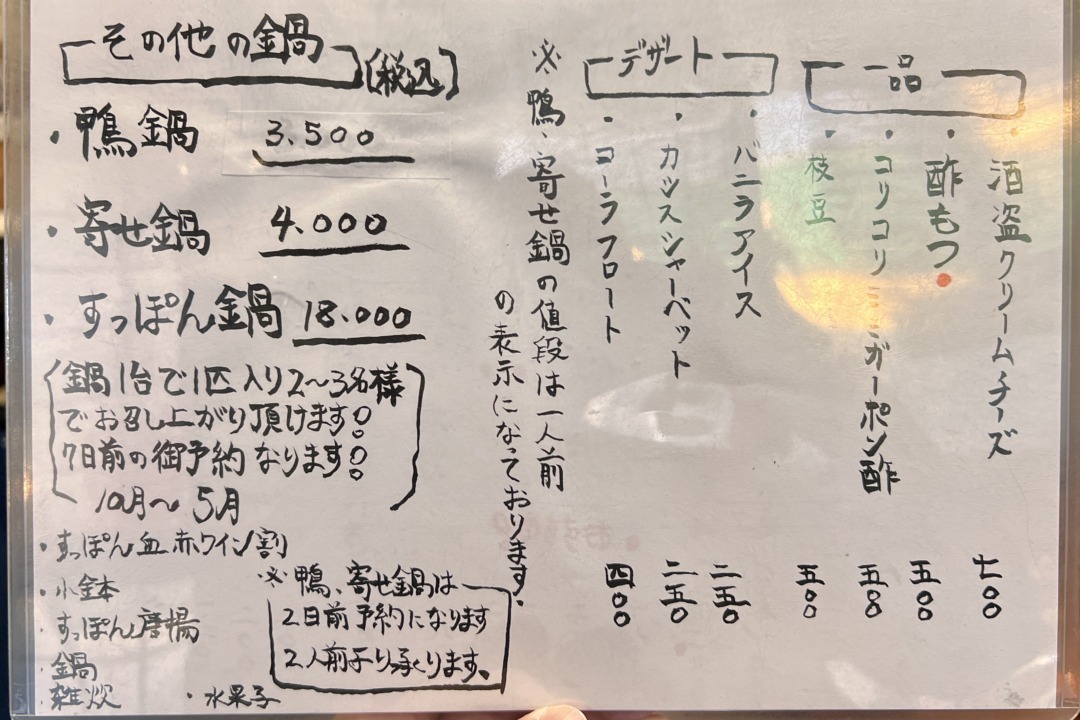 一品
酒盗クリームチーズ 七〇〇
・酢もつ 五〇〇
・コリコリミミガーポン酢 五〇〇
・枝豆 五〇〇
デザート
・バニラアイス 二五〇
・カシスシャーベット 二五〇
・コーラフロート 四〇〇
※鴨、寄せ鍋の値段は一人前
の表示になっております。
その他の鍋 (税込)
・鴨鍋 3.500
・寄せ鍋 4.000
・すっぽん鍋 18.000
鍋1台で1匹入り2〜3名様
でお召し上がり頂けます!
7日前の御予約なります!
10月〜5月
・すっぽん血赤ワイン割
・小鉢
・すっぽん唐揚
・鍋
・雑炊
・水菓子
※鴨、寄せ鍋は
2日前予約になります
2人前より承ります。